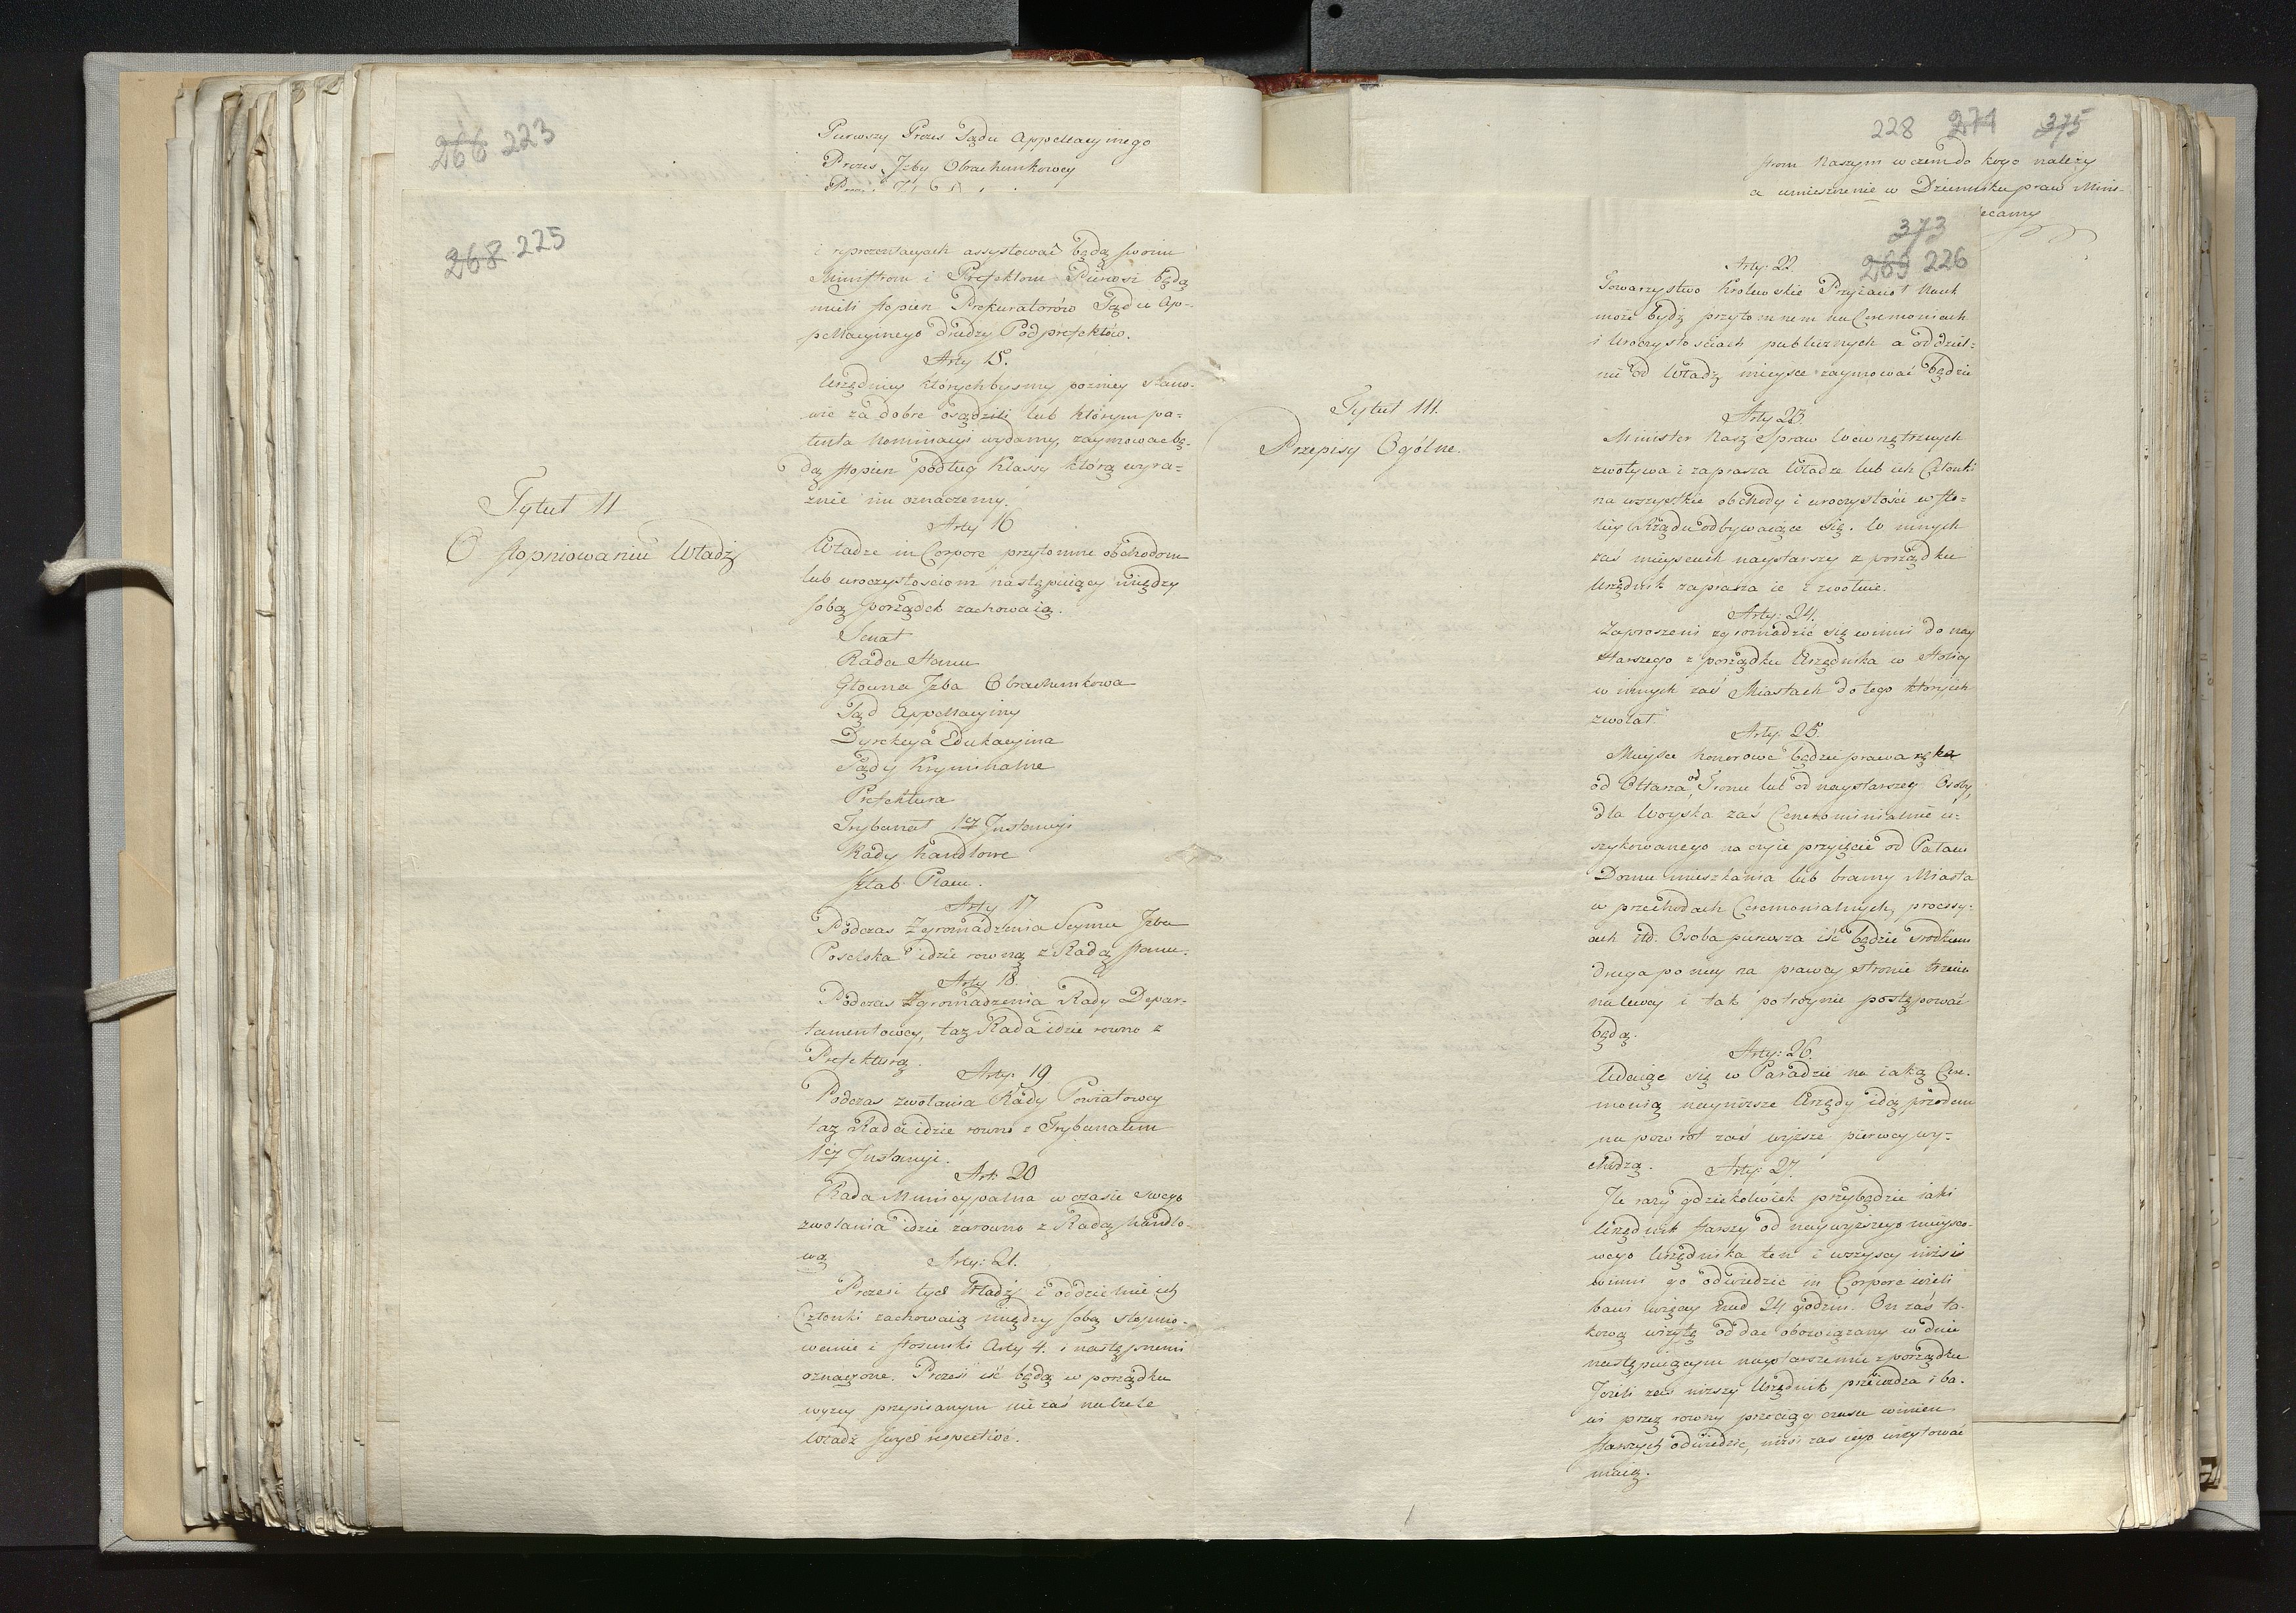 266 223
Pierwszy Prezes Sądu Appellacyinego
Prezes Jzby Obrachunkowey
268 225
i reprezentacyach assystować będą swoim
Ministrom i Prefektom Pierwsi będą
mieli stopien Prokuratorów Sądu Ap-
pellacyinego drudzy Podprefektów.
Arty 15.
Urzędnicy których byśmy pozniey stano-
wić za dobre osądzili lub którym pa-
tenta Nominacyi wydamy, zaymować bę-
dą stopien podług Klassy którą wyra-
znie im oznaczemy.
Tytuł II
O stopniowaniu Władz
Arty 16
Władze in Corpore przytomne obchodom
lub uroczystosciom następuiący między
sobą porządek zachowaią.
Senat
Rada Stanu
Głowna Jzba Obrachunkowa
Sąd Appellacyiny
Dyrekcya Edukacyina
Sądy Kryminalne
Prefektura
Trybunał 1ey Jnstancyi
Rady handlowe
Sztab Placu.
Arty 17
Podczas Zgromadzenia Seymu Jzba
Poselska idzie rowną z Radą stanu.
Arty 18.
Podczas Zgromadzenia Rady Depar-
tamentowey, taż Rada idzie rowno z
Prefekturą.
Arty: 19
Podczas zwołania Rady Powiatowey
taż Rada idzie rowno z Trybunałem
1ey Jnstancyi.
Art: 20
Rada Municypalna w czasie swego
zwołania idzie zarowno z Radą handlo-
wą
Arty: 21.
Prezesi tych Władz i oddzielnie ich
Członki zachowaią między sobą stopnio-
wanie i stosunki Arty 4. i następnemi
oznaczone. Prezesi iść będą w porządku
wyzey przepisanym nie zaś na czele
Władz swych respective.
228 274 375
strom Naszym w czem do kogo należy
a umieszczenie w Dzienniku praw Minis-
ecamy
373
269 226
Tytuł III.
Przepisy Ogólne.
Arty: 22.
Towarzystwo Krolewskie Przyiacioł Nauk
może bydź przytomnem na Ceremoniach
i Uroczystosciach publicznych a oddziel-
ne od Władz mieysce zaymować będzie
Arty 23.
Minister Nasz Spraw Wewnętrznych
zwoływa i zaprasza Władze lub ich Członki
na wszystkie obchody i uroczystości w sto-
licy Rządu odbywaiące się. W innych
zaś mieyscach naystarszy z porządku
Urzędnik zaprasza ie i zwołuie.
Arty: 24.
Zaproszeni zgromadzić się winni do nay
starszego z porządku Urzędnika w stolicy
w innych zaś Miastach do tego który ich
zwołał.
Arty: 25.
Mieysce honorowe będzie prawa ręka
od Ołtarza, od Tronu lub od naystarszey Osoby,
dla Woyska zaś Ceremonialnie u-
szykowanego na czyie przyięcie od Pałacu
Domu mieszkania lub bramy Miasta
w przechodach Ceremonialnych, processy-
ach itd. Osoba pierwsza iść będzie srodkiem
druga po niey na prawey stronie trzecia
na lewey i tak potroynie postępować
będą.
Arty: 26.
Udaiąc się w Paradzie na iaką Cere-
monią nayniższe Urzędy idą przodem
na powrot zaś wyższe pierwey wy-
chodzą.
Arty: 27.
Jle razy gdziekolwiek przybędzie iaki
Urzędnik starszy od naywyższego mieysco-
wego Urzędnika ten i wszyscy niżsi
winni go odwiedzić in Corpore ieżeli
bawi więcey nad 24 godzin. On zaś ta-
kową wizytę oddać obowiązany w dniu
następuiącym naystarszemu z porządku
Jeżeli zaś niższy Urzędnik przeiezdza i ba-
wi przez rowny przeciąg czasu winien
starszych odwiedzić, niżsi zas iego wizytować
maią.